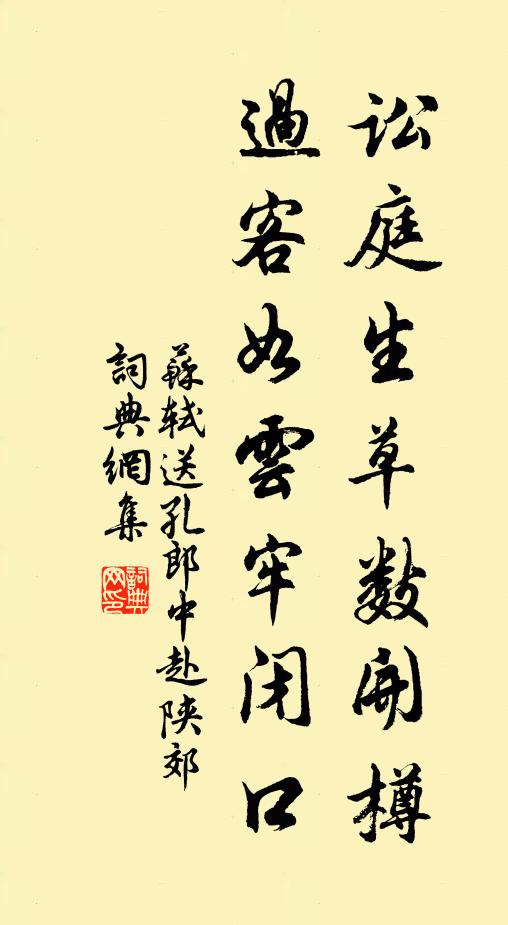 訟庭生草數開樽
過客如雲牢閉口
蘇軾送孔郎中赴陝郊
詞典網集
詞典网印